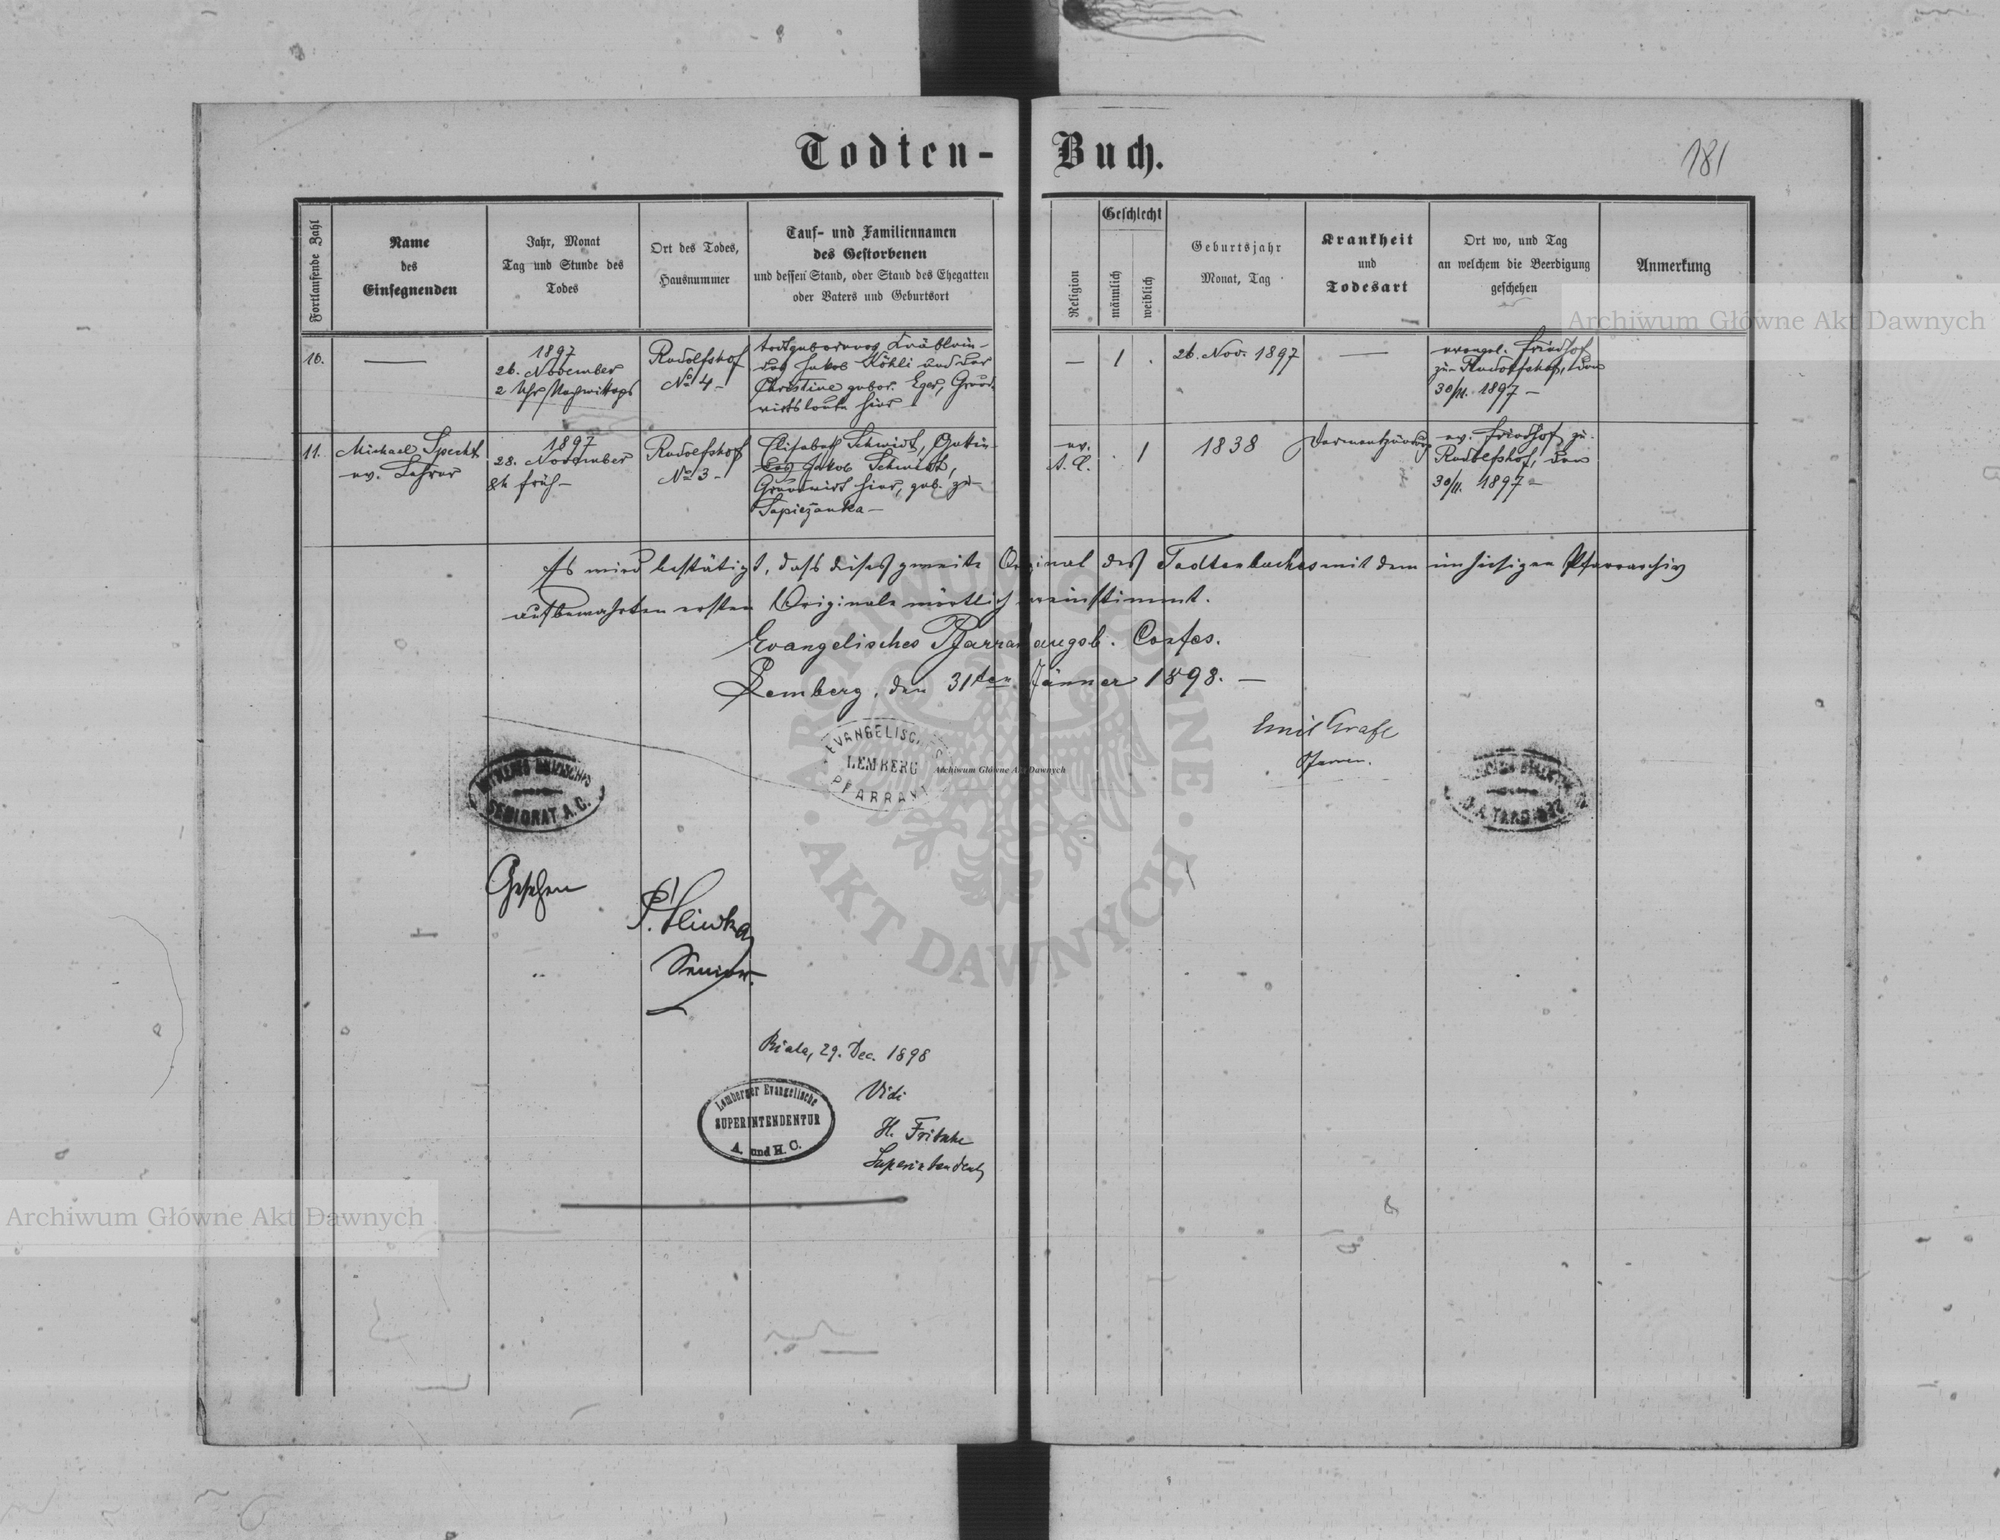 Todten-Buch.
181
Fortlaufende Zahl
Name
des
Einsegnenden
Jahr, Monat
Tag und Stunde des
Todes
Ort des Todes,
Hausnummer
Tauf- und Familiennamen
des Gestorbenen
und dessen Stand, oder Stand des Ehegatten
oder Vaters und Geburtsort
Religion
Geschlecht
männlich
weiblich
Geburtsjahr
Monat, Tag
Krankheit
und
Todesart
Ort wo, und Tag
an welchem die Beerdigung
geschehen
Anmerkung
10.
—
1897
26. November
2 Uhr Nachmittags
Rudolfshof
No 4 –
todtgeborenes Knäblein
des Jakob Köhli und der
Christine gebor. Eger, Grund-
wirtsleute hier
—
1
.
26. Nov. 1897
—
evangel. Friedhof
zu Rudolfshof, den
30/11. 1897 –
11.
Michael Specht
ev. Lehrer
1897
28. November
8h früh –
Rudolfshof
No 3 –
Elisabeth Schmidt, Gattin
des Jakob Schmidt,
Grundwirt hier, geb. zu
Sapieżanka –
ev.
A. C.
.
1
1838
Darmentzündung
ev. Friedhof zu
Rudolfshof, den
30/11. 1897 –
Es wird bestätigt, dass dieses zweite Original des Todtenbuches mit dem im hiesigen Pfarrarchiv
aufbewahrten ersten Originale wörtlich übereinstimmt.
Evangelisches Pfarramt augsb. Confes.
Lemberg, den 31ten Jänner 1898. —
Emil Grafl
Pfarrer.
EVANGELISCHES
LEMBERG
PFARRAMT
SENIORAT A. C.
Gesehen
Senior.
Biala, 29. Dec. 1898
Vidi
H. Fritsche
Superintendent
Lemberger Evangelische
SUPERINTENDENTUR
A. und H. C.
Archiwum Główne Akt Dawnych
Archiwum Główne Akt Dawnych
Archiwum Główne Akt Dawnych
ARCHIWUM GŁÓWNE
AKT DAWNYCH